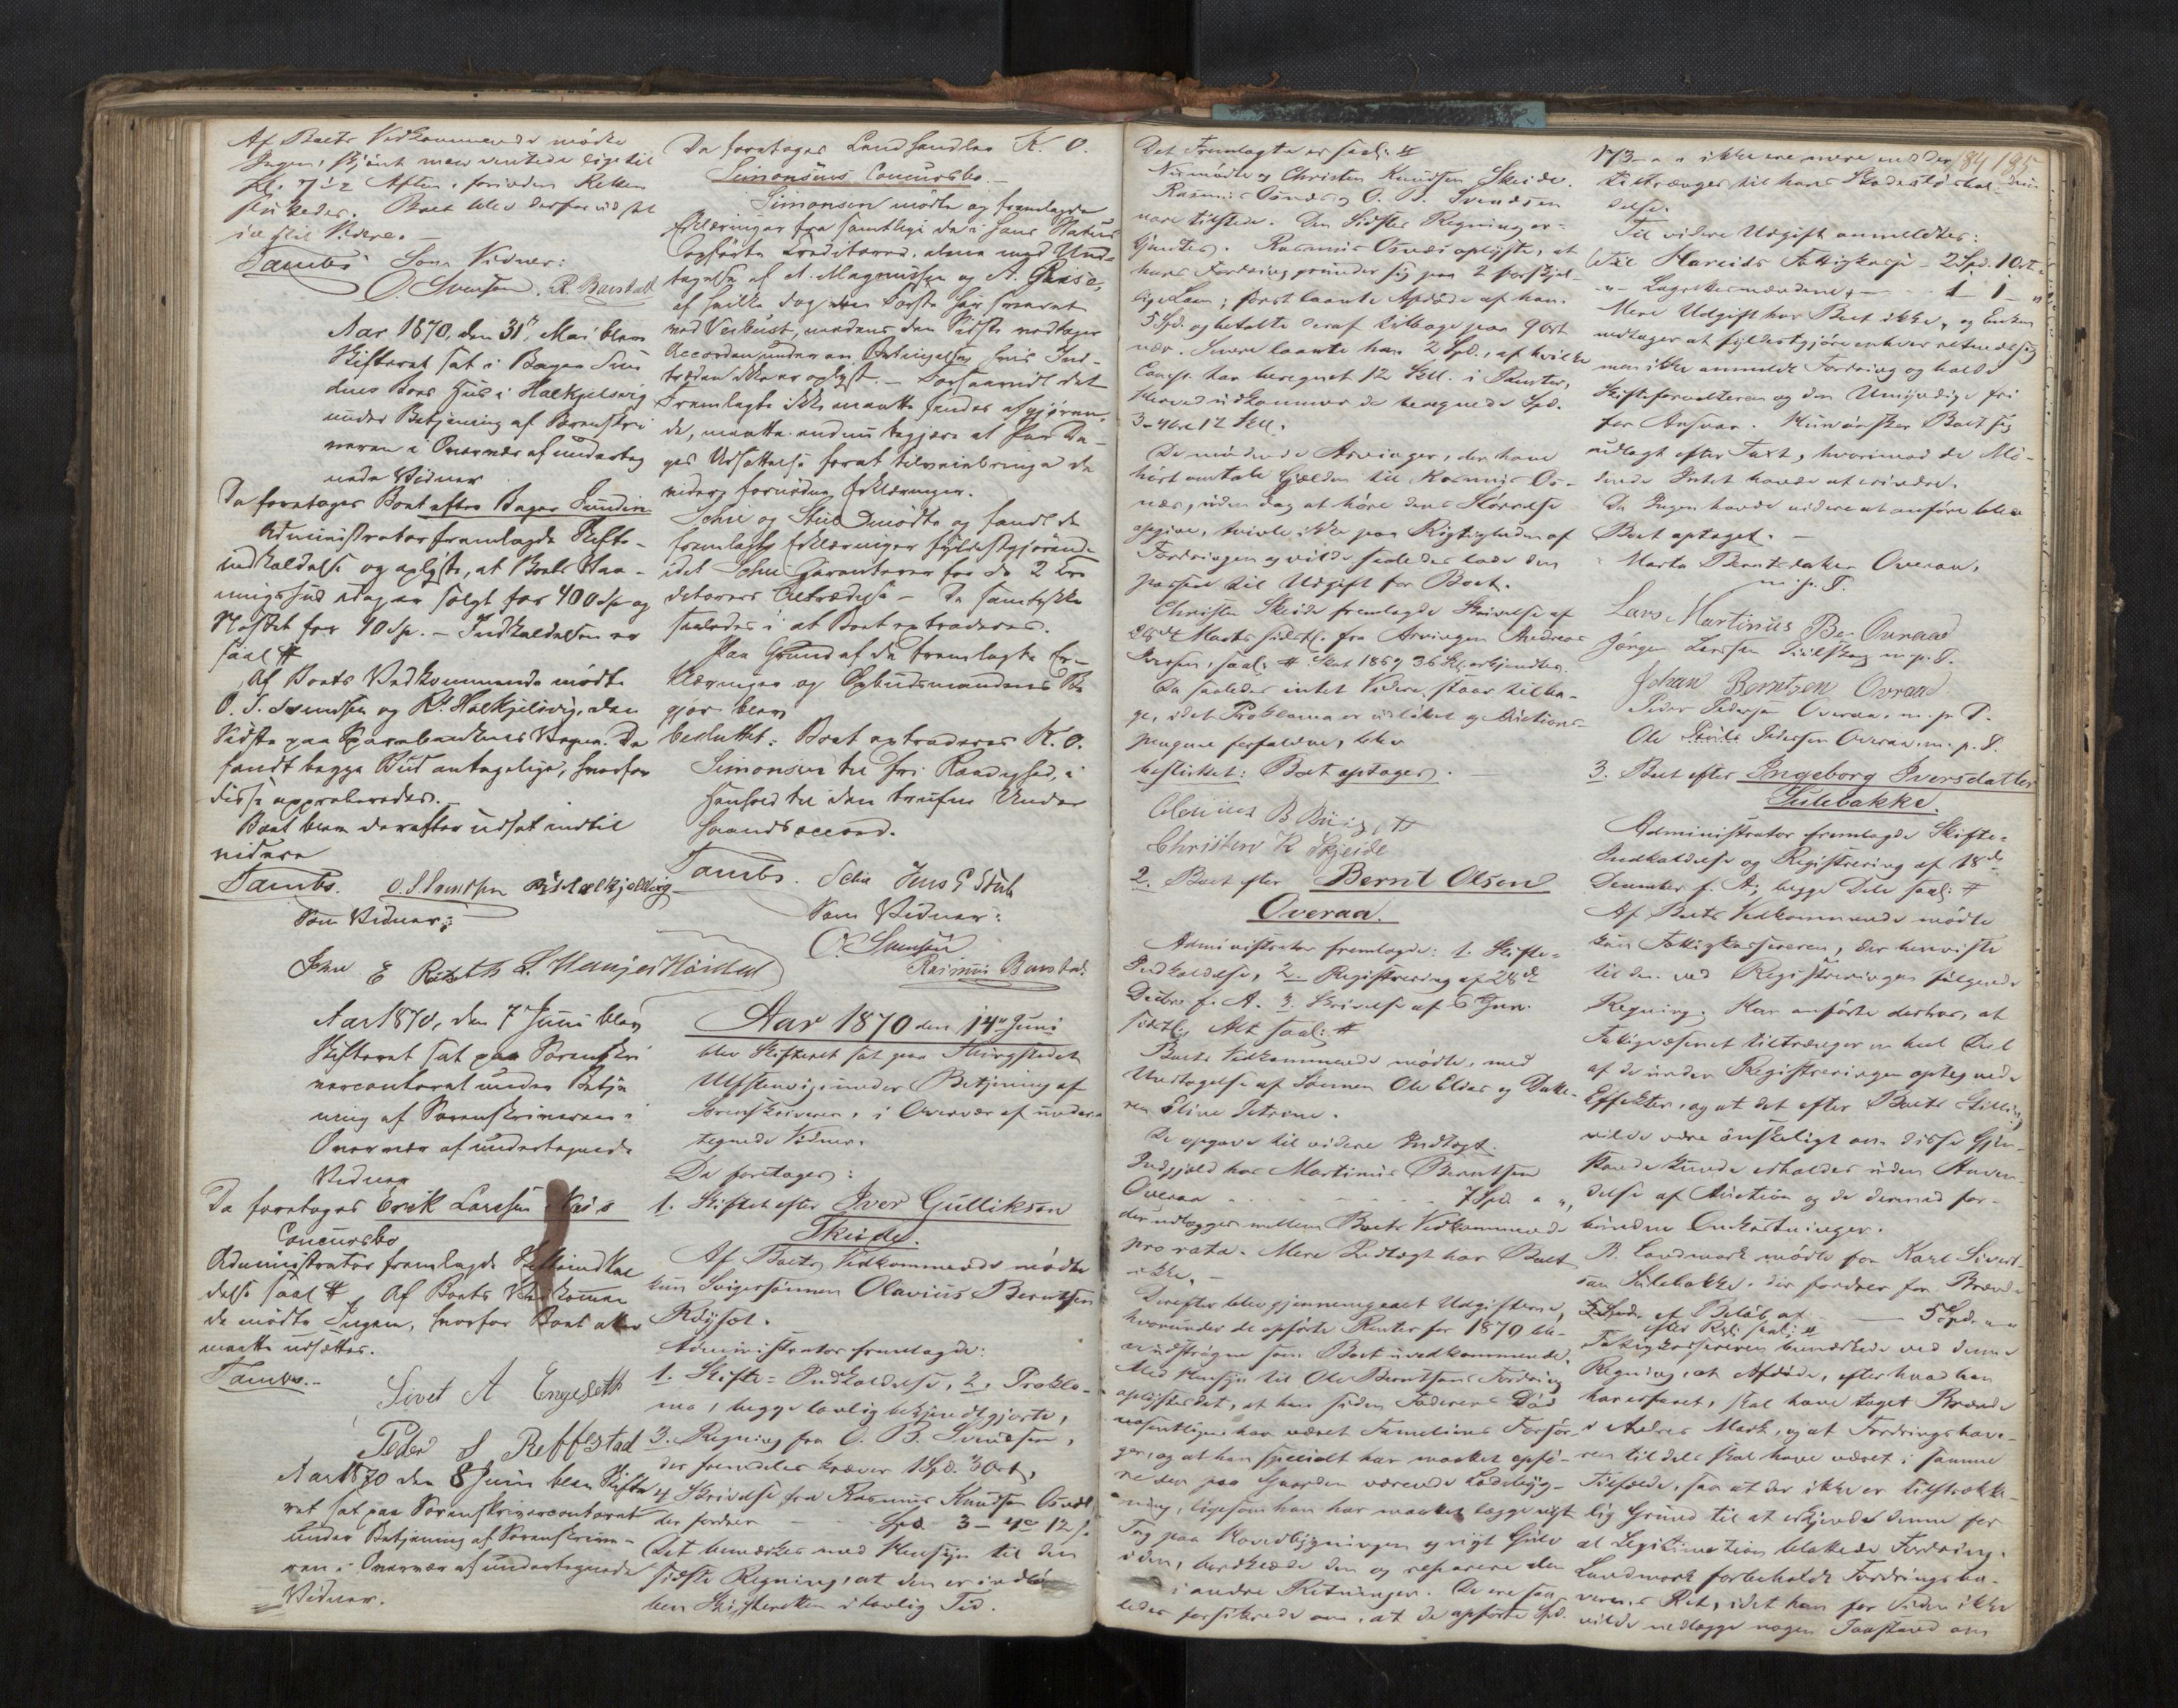 Af Boets Vedkommende mødte
Ingen, skjønt man ventede lige til
Kl. 7 1/2 Aften, forinden Retten
sluttedes. Boet blev derfor udsat
indtil Videre.
Tambs Som Vidner:
O. Svensen. R. Barstad
Aar 1870, den 31te Mai blev
Skifteret sat i Bager Sun
dins Boes Hus i Halkjelsvig
under Betjening af Sorenskri
veren i Overvær af underteg
nede Vidner.
Da foretages Boet efter Bager Sundin
Administrator fremlagde Skifte-
indkaldelse og oplyste, at Boets Vaa-
ningshus idag er solgt for 400 Sp og
Nøstet for 10 Sp. – Indkaldelsen er
saal #
Af Boets Vedkommende mødte
O. S. Svendsen og R. Halkjelsvig, den
Sidste paa Sparebankens Vegne. De
fandt begge Bud antagelige, hvorfor
disse approberedes.
Boet blev derefter udsat indtil
videre
Tambs. O. S. Svendsen R. Halkjelsvig
Som Vidner:
John E Riseth L. Hanjes Nørdal
Aar 1870, den 7 Juni blev
Skifteret sat paa Sorenskri
vercontoret under Betje
ning af Sorenskriveren i
Overvær af undertegnede
Vidner
Da foretages Erik Larssen Næs's
Concursbo
Administrator fremlagde Skifteindkal
delse saal #. Af Boets Vedkommen
de mødte Ingen, hvorfor Boet atter
maatte udsættes.
Tambs.
Sivet A Engeseth
Peder J Reffstad
Aar 1870 den 8 Juni blev Skifte
ret sat paa Sorenskrivercontoret
under Betjening af Sorenskrive-
ren i Overvær af undertegnede
Vidner.
Da foretages Landhandler K. O.
Simonsens Concursbo.
Simonsen mødte og fremlagde
Erklæringer fra samtlige de i hans Status
opførte Creditorer, alene med Und-
tagelse af A. Magnussen og A. Gaasø,
af hvilke dog den Første har svaret
ved Veibust, medens den Sidste vedtager
Accorden under en Betingelse hvis Ind-
træden ikke er oplyst. – Forsaavidt det
Fremlagte ikke maatte findes afgjøren-
de, maatte endnu begjære et Par Da-
ges Udsættelse forat tilveiebringe de
videre fornødne Erklæringer.
Schie og Stub mødte og fandt de
fremlagte Erklæringer fyldestgjørende
idet Schie garanterer for de 2 Cre
ditorers Tiltrædelse – De samtykke
saaledes i at Boet extraderes.
Paa Grund af de fremlagte Er-
klæringer og Opbudsmandens Be
gjær blev
besluttet: Boet extraderes K. O.
Simonsen til fri Raadighed, i
Henhold til den trufne Under
haandsaccord.
Tambs. Schie Jens E Stub
Som Vidner:
O. Svensen
Rasmus Barstad.
Aar 1870 den 14de Juni
blev Skifteret sat paa Thingstedet
Ulfstenvig under Betjening af
Sorenskriveren, i Overvær af under-
tegnede Vidner.
Da foretages:
1. Skiftet efter Iver Gulliksen
Skeide.
Af Boets Vedkommende mødte
kun Svigersønnen Olavius Berntsen
Røyset.
Administrator fremlagde:
1. Skifte-Indkaldelse, 2. Prokla-
ma, begge lovlig bekjendtgjorte,
3. Regning fra O. B. Svendsen,
der fremdeles kræver 1 Spd. 3 Ort,
4 Skrivelse fra Rasmus Knudsen Osnæs
der fordrer – Spd. 3 – 4 – 12 s.
Det bemærkes med Hensyn til den
sidste Regning, at den er indløb
ben Skifteretten i lovlig Tid.
Det Fremlagte er saal: #
Nu mødte og Christen Knudsen Skeide.
Rasmus Osnæs og O. B. Svendsen
vare tilstede. Den Sidstes Regning er-
kjendtes. Rasmus Osnæs oplyste, at
hans Fordring grunder sig paa 2 forskjel-
lige Laan; først laante Afdøde af ham
5 Spd. og betalte deraf tilbage paa 9 Ort
nær. Senere laante han 2 Spd., af hvilke
Comp. har beregnet 12 Skl. i Renter,
herved udkommer de beregnede Spd.
3–4 Ort 12 Skl.
De mødende Arvinger, der have
hørt omtale Gjælden til Rasmus Os-
næs, uden dog at høre dens Størrelse
opgive, tvivle ikke paa Rigtigheden af
Fordringen og vilde saaledes lade den
passere til Udgift for Boet.
Christen Skeide fremlagde Skrivelse af
28de Marts sidstl. fra Arvingen Andreas
Iversen, saal: #. Skat 1869 36 Skl. erkjendtes.
Da saaledes intet Videre staar tilba-
ge, idet Proklama er udløbet og Auctions-
pengene forfaldne, blev
besluttet: Boet optages.
Olavius B Røiset
Christen K Skjeide
2. Boet efter Bernt Olsen
Overaa.
Administrator fremlagde: 1. Skifte-
Indkaldelse, 2. Registrering af 28de
Decbr. f. A. 3. Skrivelse af 6 Jan.
sidstl. Alt saal: #
Boets Vedkommende mødte, med
Undtagelse af Sønnen Ole Elias og Datte-
ren Eline Petrine.
De opgave til videre Indtægt.
Indgjæld hos Martinus Berntsen
Overaa - - - - - 7 Spd. " ",
der udlægges mellem Boets Vedkommende
pro rata. Mere Indtægt har Boet
ikke. –
Derefter blev gjennemgaaet Udgifterne,
hvorunder de opførte Renter for 1870 ble-
ve udstrøgne som Boet uvedkommende.
Med Hensyn til Ole Berntsens Fordring
oplystes det, at han siden Faderens Død
væsentligen har været Familiens Forsør-
ger, og at han specielt har maattet opfø-
re den paa Gaarden værende Ladebyg-
ning, ligesom han har maattet lægge nyt
Tag paa Hovedbygningen og nyt Gulv
i den, bordklæde den og reparere den
i andre Retninger. De ere saa-
ledes forsikrede om, at de opførte Spd.
184 185
173 – " " ikke ere mere end der
tiltrænges til hans Skadesløshol-
delse.
Til videre Udgift anmeldtes:
Til Hareids Fattigkasse – 2 Spd. 1 Ort "
" – Lagrettesmændene – 1 – 1 – "
Mere Udgift har Boet ikke, og Enken
vedtager at fyldestgjøre enhver retmæssig
men ikke anmeldt Fordring og holde
Skifteforvalteren og den Umyndige fri
for Ansvar. Hun ønsker Boet sig
udlagt efter Taxt, hvorimod de Mø-
dende Intet havde at erindre.
Da Ingen havde videre at anføre blev
Boet optaget. –
Marta Berntsdatter Overaa,
m. p. P.
Lars Martinus Be- Overaad
Jørgen Larssen m. p. P.
Johan Berntzen Overaa
Peder Pedersen Overaa, m. p. P.
Ole Pedersen Overaa, m. p. P.
3. Boet efter Ingeborg Iversdatter
Tulebakke.
Administrator fremlagde Skifte-
Indkaldelse og Registrering af 18de
December f. A; begge Dele saal: #
Af Boets Vedkommende mødte
kun Fattigkassereren, der henviste
til den ved Registreringen følgende
Regning. Han anførte derhos, at
Fattigvæsenet tiltrænger en heel Deel
af de under Registreringen optegnede
Effekter, og at det efter Boets Stilling
vilde være ønskeligt om disse Gjen-
stande kunde erholdes uden Anven-
delse af Auction og de dermed for-
bundne Omkostninger.
R. Landmark mødte for Karl Sivert-
sen Tulebakke, der fordrer for Brænde
et Beløb af — 5 Spd. " "
efter Regl. saal: #
Fattigkassereren bemærkede ved denne
Regning, at Afdøde, efter hvad han
har erfaret, skal have taget Brænde
i Andres Mark, og at Fordringshave-
ren tildels skal have været i samme
Tilfælde, saa at der ikke er tilstrække-
lig Grund til at erkjende denne for
al Legitimation blottede Fordring.
Landmark forbeholdt Fordringsha-
verens Ret, idet han for Tiden ikke
vilde nedlægge nogen Paastand om